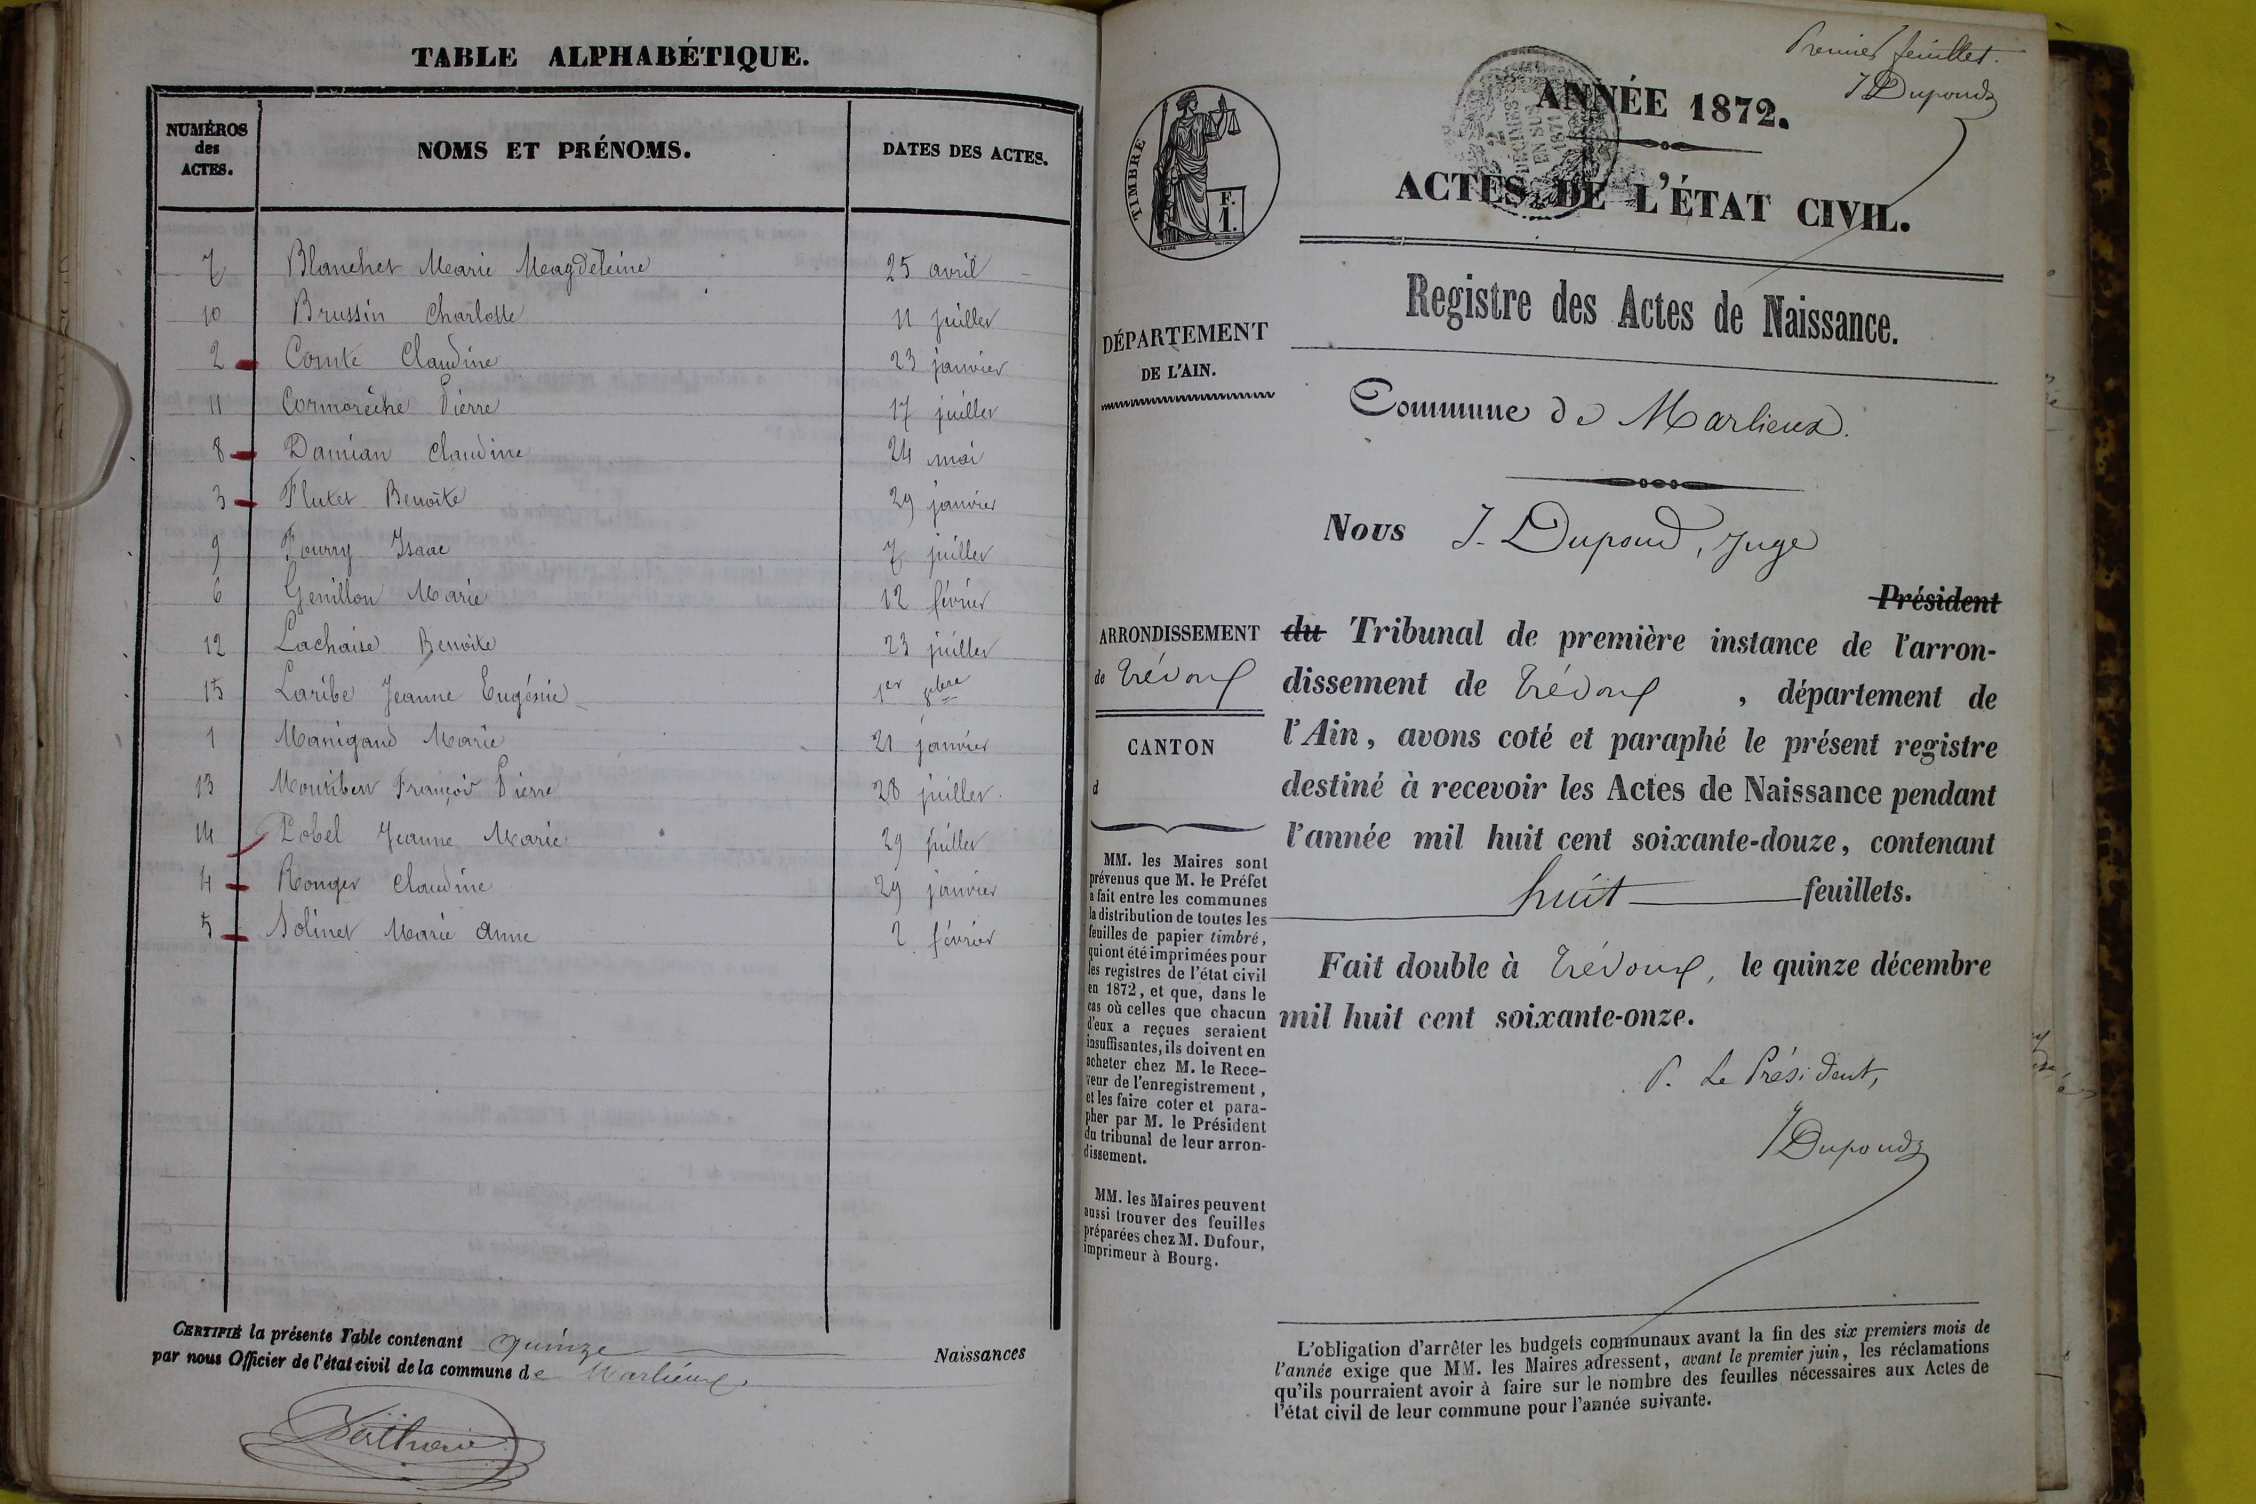 TABLE ALPHABÉTIQUE.
NUMÉROS des ACTES. NOMS ET PRÉNOMS. DATES DES ACTES.
7 Blanchet Marie Magdeleine 25 avril
10 Brussin Charlotte 11 juillet
2 Comte Claudine 23 janvier
11 Cormorèche Pierre 17 juillet
8 Damian Claudine 24 mai
3 Flutet Benoite 29 janvier
9 Fourry Isaac 7 juillet
6 Genillon Marie 12 février
12 Lachaise Benoite 23 juillet
15 Laribe Jeanne Eugénie 1er 8bre
1 Manigand Marie 21 janvier
13 Montibert François Pierre 28 juillet.
14 Pobel Jeanne Marie 29 juillet
4 Ronger Claudine 29 janvier
5 Solinet Marie Anne 2 février
CERTIFIÉ la présente Table contenant quinze Naissances
par nous Officier de l'état civil de la commune de Marlieux.
Premier feuillet.
J Dupond
ANNÉE 1872.
2 DÉCIMES EN SUS 1871
TIMBRE
F. 1.
ACTES DE L'ÉTAT CIVIL.
Registre des Actes de Naissance.
DÉPARTEMENT
DE L'AIN.
Commune de Marlieux.
Nous J. Dupond, Juge
Président
ARRONDISSEMENT
de Trévoux
CANTON
d
du Tribunal de première instance de l'arron-
dissement de Trévoux, département de
l'Ain, avons coté et paraphé le présent registre
destiné à recevoir les Actes de Naissance pendant
l'année mil huit cent soixante-douze, contenant
huit feuillets.
Fait double à Trévoux, le quinze décembre
mil huit cent soixante-onze.
P. Le Président,
J Dupond
MM. les Maires sont
prévenus que M. le Préfet
a fait entre les communes
la distribution de toutes les
feuilles de papier timbré,
qui ont été imprimées pour
les registres de l'état civil
en 1872, et que, dans le
cas où celles que chacun
d'eux a reçues seraient
insuffisantes, ils doivent en
acheter chez M. le Rece-
veur de l'enregistrement,
et les faire coter et para-
pher par M. le Président
du tribunal de leur arron-
dissement.
MM. les Maires peuvent
aussi trouver des feuilles
préparées chez M. Dufour,
imprimeur à Bourg.
L'obligation d'arrêter les budgets communaux avant la fin des six premiers mois de
l'année exige que MM. les Maires adressent, avant le premier juin, les réclamations
qu'ils pourraient avoir à faire sur le nombre des feuilles nécessaires aux Actes de
l'état civil de leur commune pour l'année suivante.